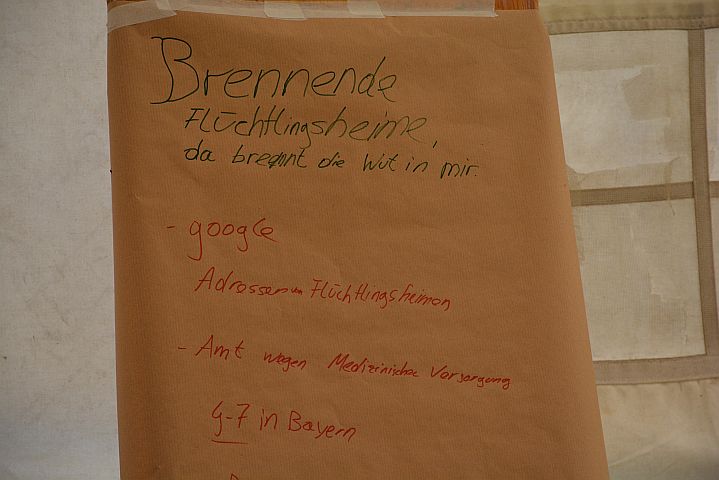 Brennende
Flüchtlingsheime,
da brennt die Wut in mir.
- google
Adressen von Flüchtlingsheimen
- Amt wegen Medizinischer Versorgung
G-7 in Bayern